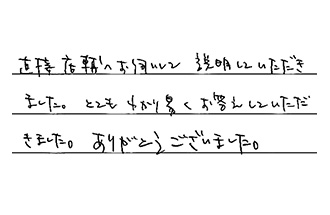 直接店舗へお伺いして説明していただき
ました。とても分かり易くお答えしていただ
きました。ありがとうございました。